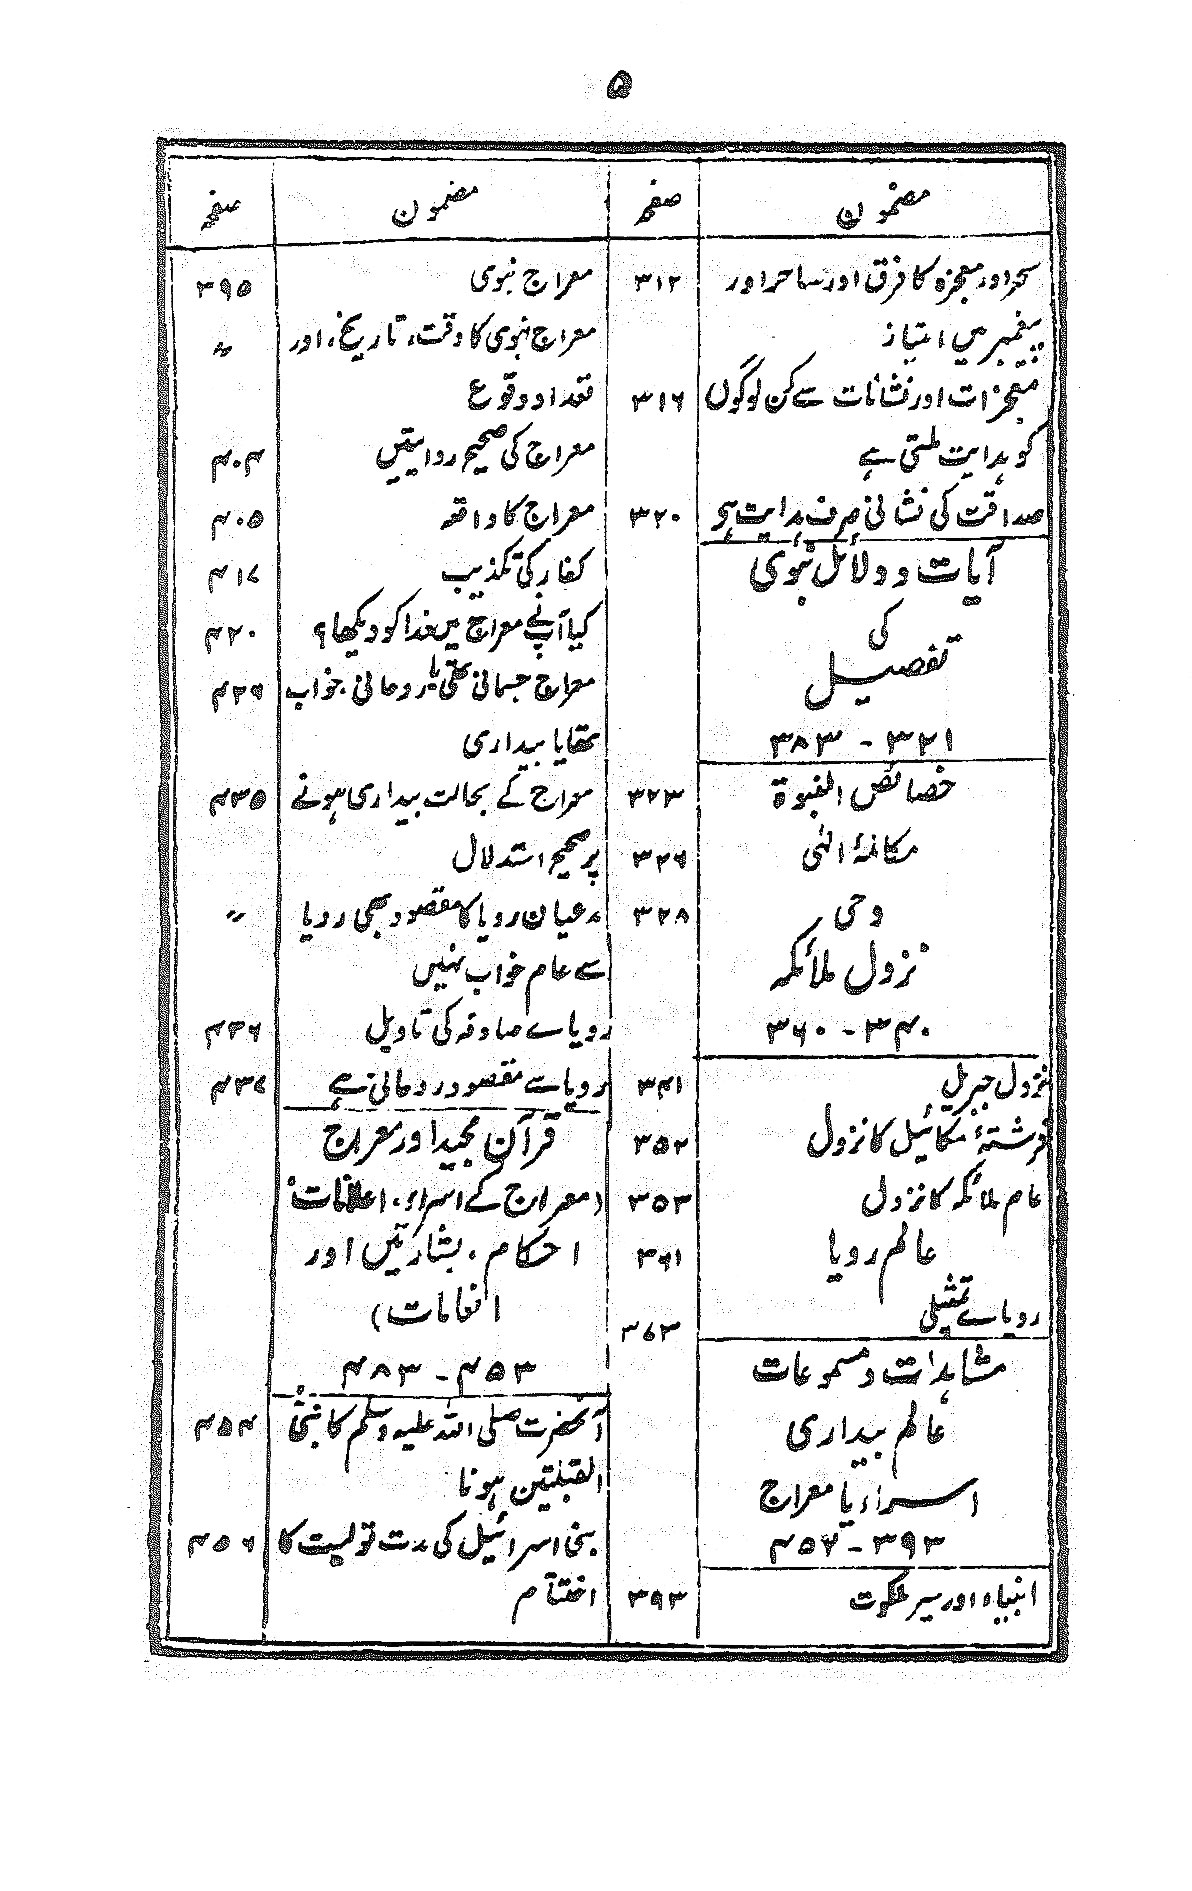 ۵
مضمون صفحہ
سحر اور معجزہ کا فرق اور ساحر اور ۳۱۲
پیغمبر میں امتیاز
معجزات اور نشانات سے کن لوگوں ۳۱۶
کو ہدایت ملتی ہے
صداقت کی نشانی صرف ہدایت ہو ۳۲۰
آیات و دلائل نبوی
کی
تفصیل
۳۲۱ - ۳۸۳
خصائص النبوۃ ۳۲۳
مکالمۂ الٰہی ۳۲۶
وحی ۳۲۸
نزول ملائکہ
۳۴۰ - ۳۶۰
نزول جبریل ۳۴۱
فرشتۂ مکائیل کا نزول ۳۵۲
عام ملائکہ کا نزول ۳۵۳
عالم رویا ۳۶۱
رویاے تمثیلی ۳۷۳
مشاہدات و مسموعات
عالم بیداری
اسراء یا معراج
۳۹۳ - ۴۵۷
انبیاء اور سیر ملکوت ۳۹۳
مضمون صفحہ
معراج نبوی ۳۹۵
معراج نبوی کا وقت، تاریخ، اور 〃
تعداد وقوع
معراج کی صحیح روایتیں ۴۰۴
معراج کا واقعہ ۴۰۵
کفار کی تکذیب ۴۱۷
کیا آپ نے معراج میں خدا کو دیکھا؟ ۴۲۰
معراج جسمانی تھی یا روحانی خواب ۴۲۶
تھا یا بیداری
معراج کے بحالت بیداری ہونے ۴۳۵
پر صحیح استدلال
مدعیان رویا کا مقصود بھی رویا 〃
سے عام خواب نہیں
رویاے صادقہ کی تاویل ۴۳۶
رویا سے مقصود روحانی ہے ۴۳۷
قرآن مجید اور معراج
(معراج کے اسرار، اعلانات،
احکام، بشارتیں اور
انعامات)
۴۵۳ - ۴۸۳
آنحضرت صلی اللہ علیہ وسلم کا نبیّ ۴۵۴
القبلتین ہونا
بنی اسرائیل کی مدت تولیت کا ۴۵۶
اختتام